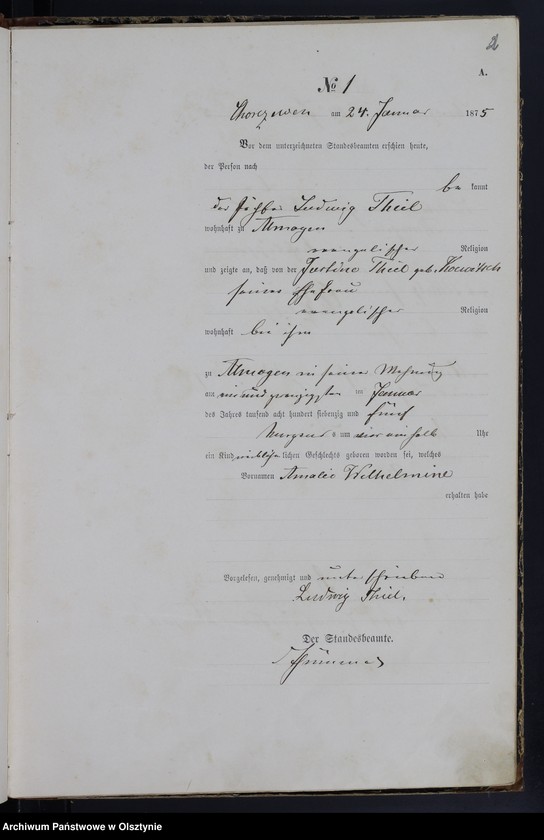 2
A.
No 1
am 24. Januar 1875
Vor dem unterzeichneten Standesbeamten erschien heute,
der Person nach
be kannt
der Ludwig Thiel
wohnhaft zu
evangelischer Religion
und zeigte an, daß von der Justine Thiel geb.
seiner Ehefrau
evangelischer Religion
wohnhaft bei ihm
zu in seiner Wohnung
am einundzwanzigsten ten Januar
des Jahres tausend acht hundert siebenzig und fünf
Morgens s um vier ein halb Uhr
ein Kind weiblichen lichen Geschlechts geboren worden sei, welches
Vornamen Amalie Wilhelmine
erhalten habe
Vorgelesen, genehmigt und unterschrieben
Ludwig Thiel.
Der Standesbeamte.
Archiwum Państwowe w Olsztynie